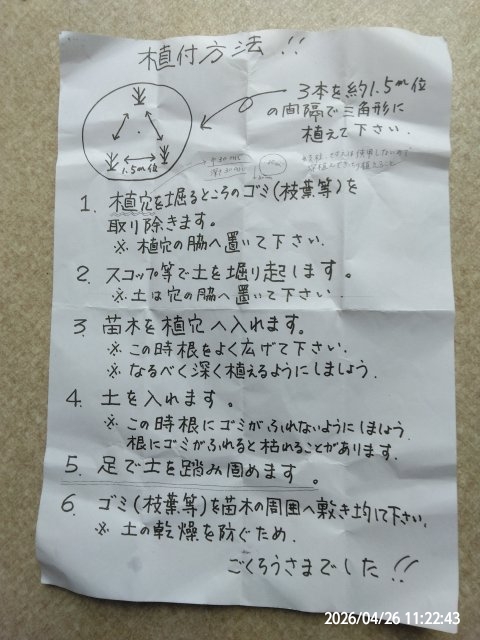 植付方法!!
3本を約1.5m位
の間隔で三角形に
植えて下さい.
1.5m位
1. 植穴を掘るところのゴミ(枝葉等)を
取り除きます。
※ 植穴の脇へ置いて下さい.
2. スコップ等で土を堀り起します。
※ 土は穴の脇へ置いて下さい.
3. 苗木を植穴へ入れます。
※ この時根をよく広げて下さい.
※ なるべく深く植えるようにしましょう.
4. 土を入れます。
※ この時根にゴミがふれないようにしましょう.
根にゴミがふれると枯れることがあります.
5. 足で土を踏み固めます。
6. ゴミ(枝葉等)を苗木の周囲へ敷き均して下さい.
※ 土の乾燥を防ぐため.
ごくろうさまでした!!
2026/04/26 11:22:43